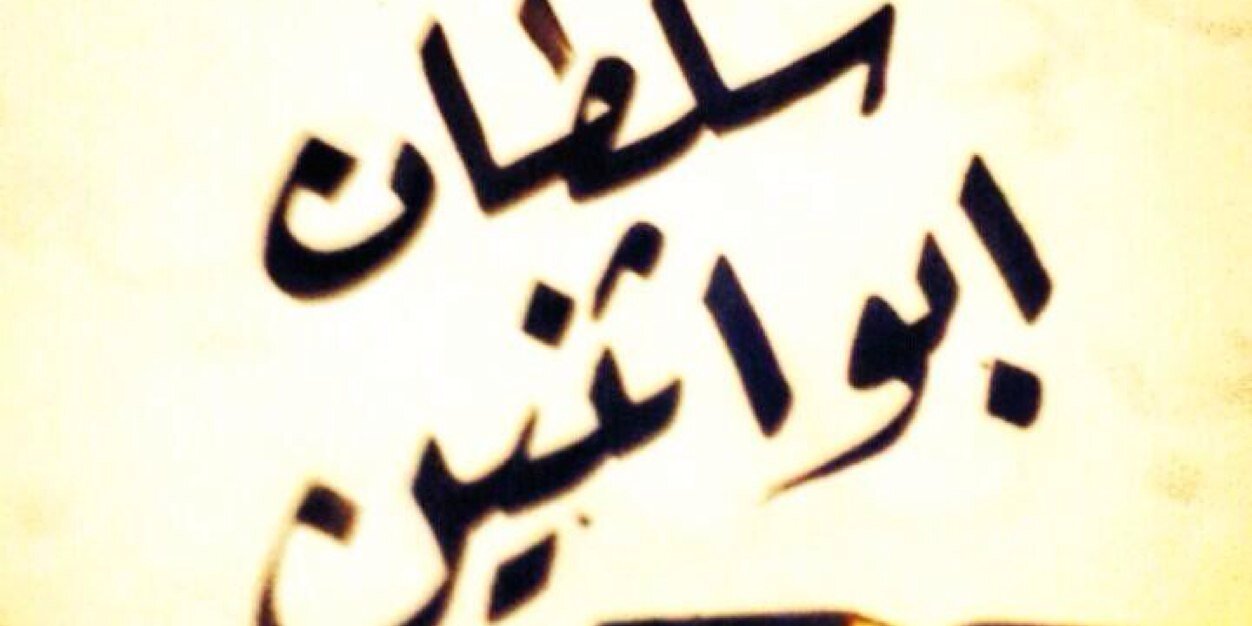 سلطان
ابو اثنين